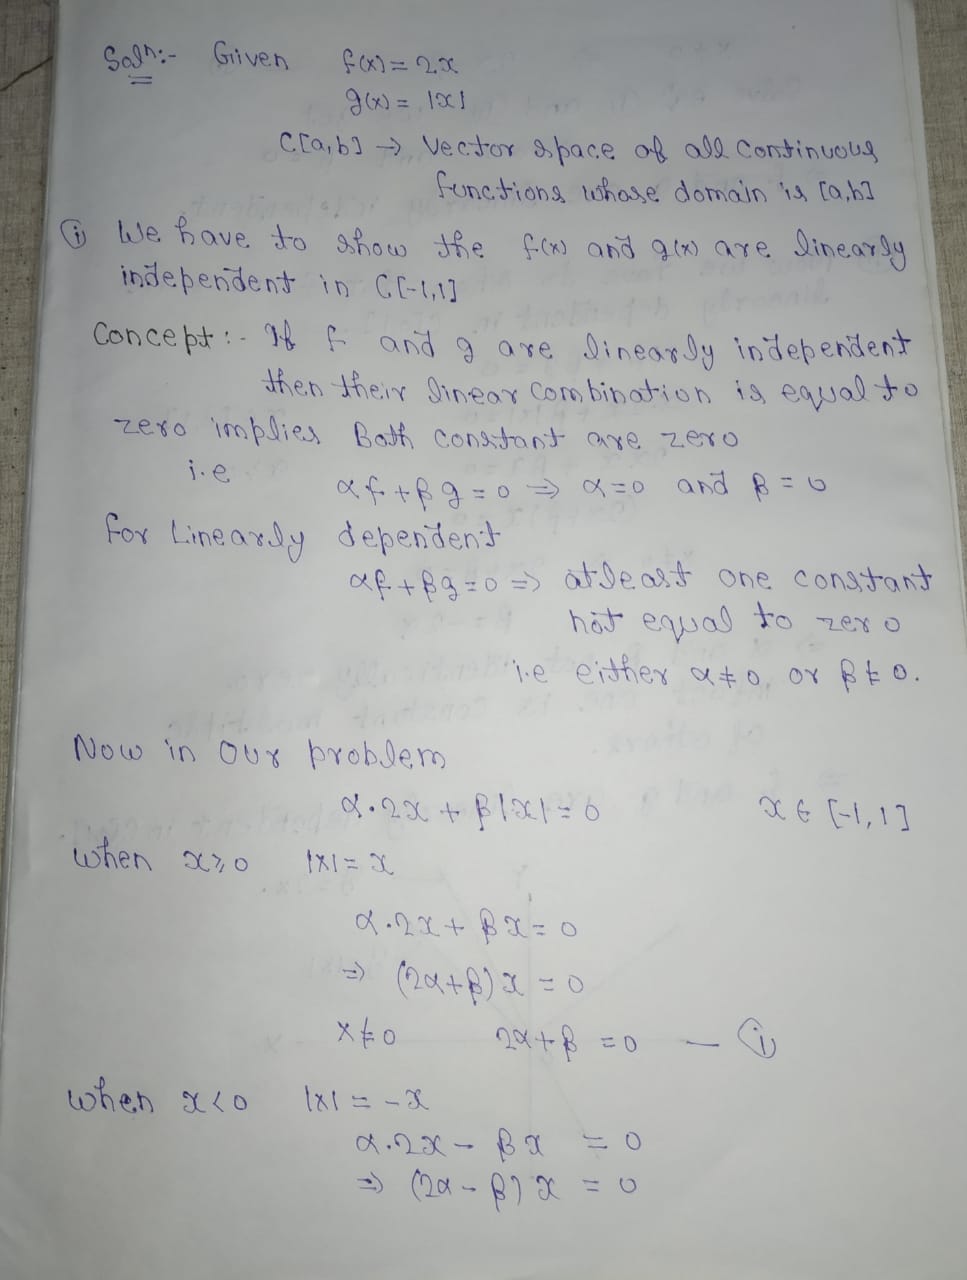 Soln:- Given f(x) = 2x
g(x) = |x|
C[a,b] → Vector space of all continuous
functions whose domain is [a,b]
(i) We have to show the f(x) and g(x) are linearly
independent in C[-1,1]
Concept:- If f and g are linearly independent
then their linear combination is equal to
zero implies Both constant are zero
i.e
αf + βg = 0 ⇒ α = 0 and β = 0
for Linearly dependent
αf + βg = 0 ⇒ atleast one constant
not equal to zero
i.e either α ≠ 0, or β ≠ 0.
Now in our problem
α·2x + β|x| = 0 x ∈ [-1,1]
when x ≥ 0 |x| = x
α·2x + βx = 0
⇒ (2α+β)x = 0
x ≠ 0 2α+β = 0 — (i)
when x < 0 |x| = -x
α·2x - βx = 0
⇒ (2α - β)x = 0